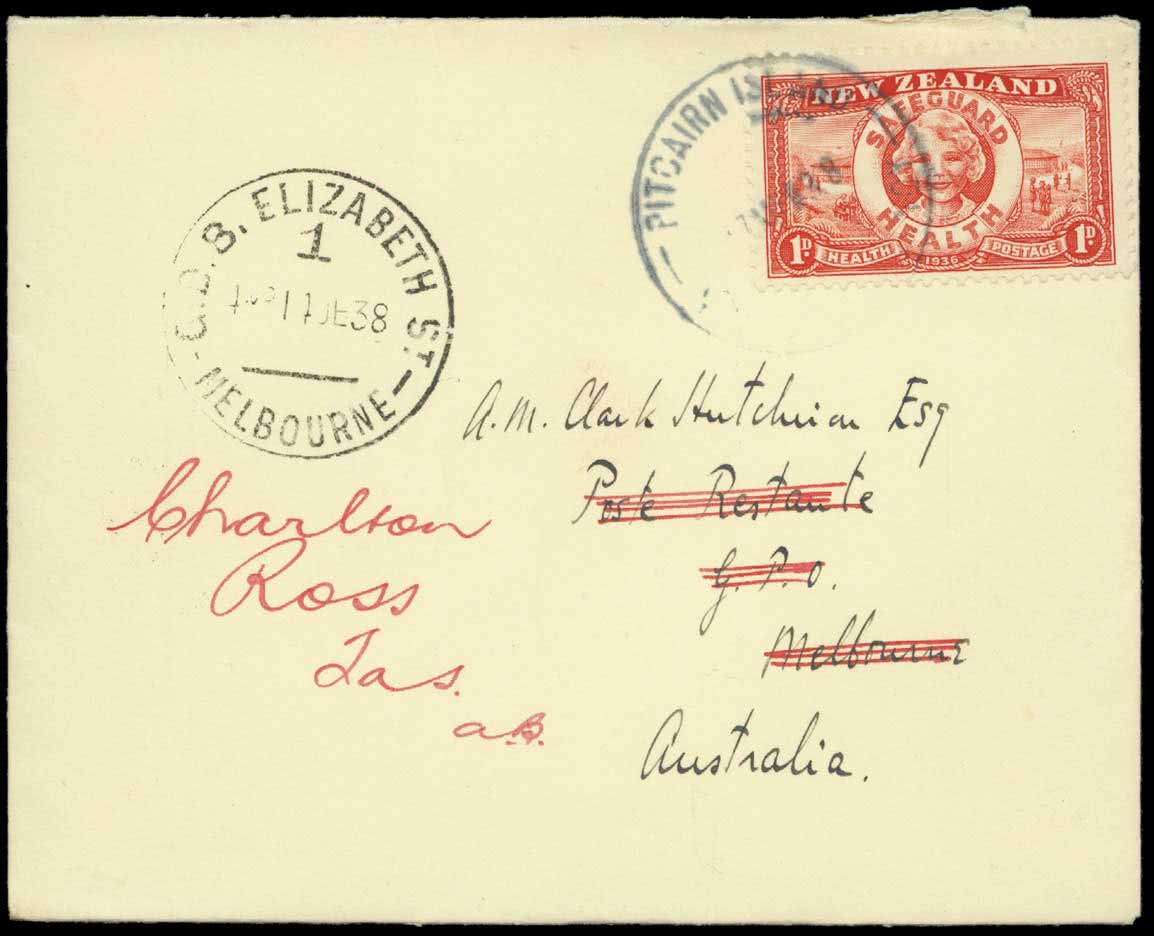 NEW ZEALAND
SAFEGUARD
HEALTH
1D HEALTH 1936 POSTAGE 1D
PITCAIRN ISLAND
C.D. B. ELIZABETH ST.
1
17 JE 38
MELBOURNE
A.M. Clark Hutchison Esq
Poste Restante
G.P.O.
Melbourne
Australia.
Charlton
Ross
Tas.
a.B.